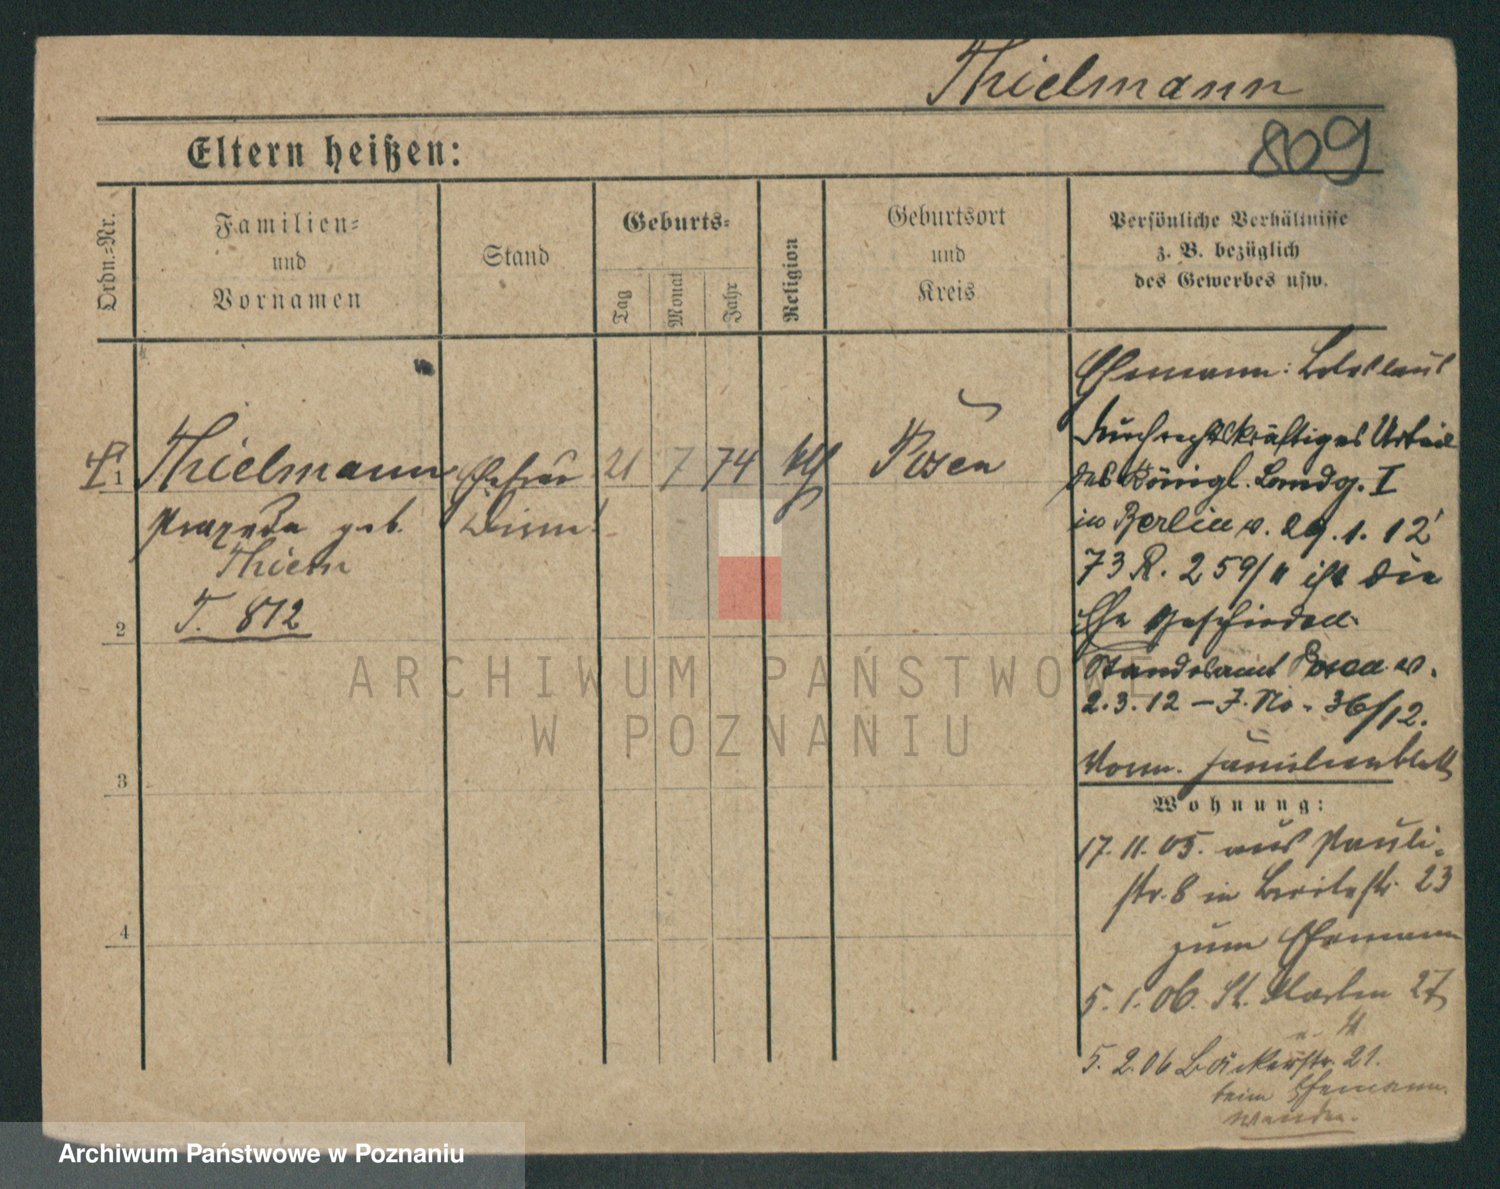 Thielmann
809
Eltern heißen:
Ordn.-Nr.
Familien-
und
Vornamen
Stand
Geburts-
Tag
Monat
Jahr
Religion
Geburtsort
und
Kreis
Persönliche Verhältnisse
z. B. bezüglich
des Gewerbes usw.
Ehemann: Boleslaus
durch rechtskräftiges Urteil
des Königl. Landg. I
in Berlin v. 29. 1. 12
73 R. 259/11 ist die
Ehe geschieden.
Standesamt Posen v.
2. 3. 12 – J. No. 36/12.
Familienblatt
1 Thielmann Ehefrau 21 7 74 kth Posen
Praxeda geb.
Thiem
T. 872
2
3
4
Wohnung:
17. 11. 05. aus Pauli-
str. 8 in Breitestr. 23
zum Ehemann
5. 1. 06. St. Martin 27
5. 2. 06 Bäckerstr. 21.
beim Ehemann
ARCHIWUM PAŃSTWOWE
W POZNANIU
Archiwum Państwowe w Poznaniu